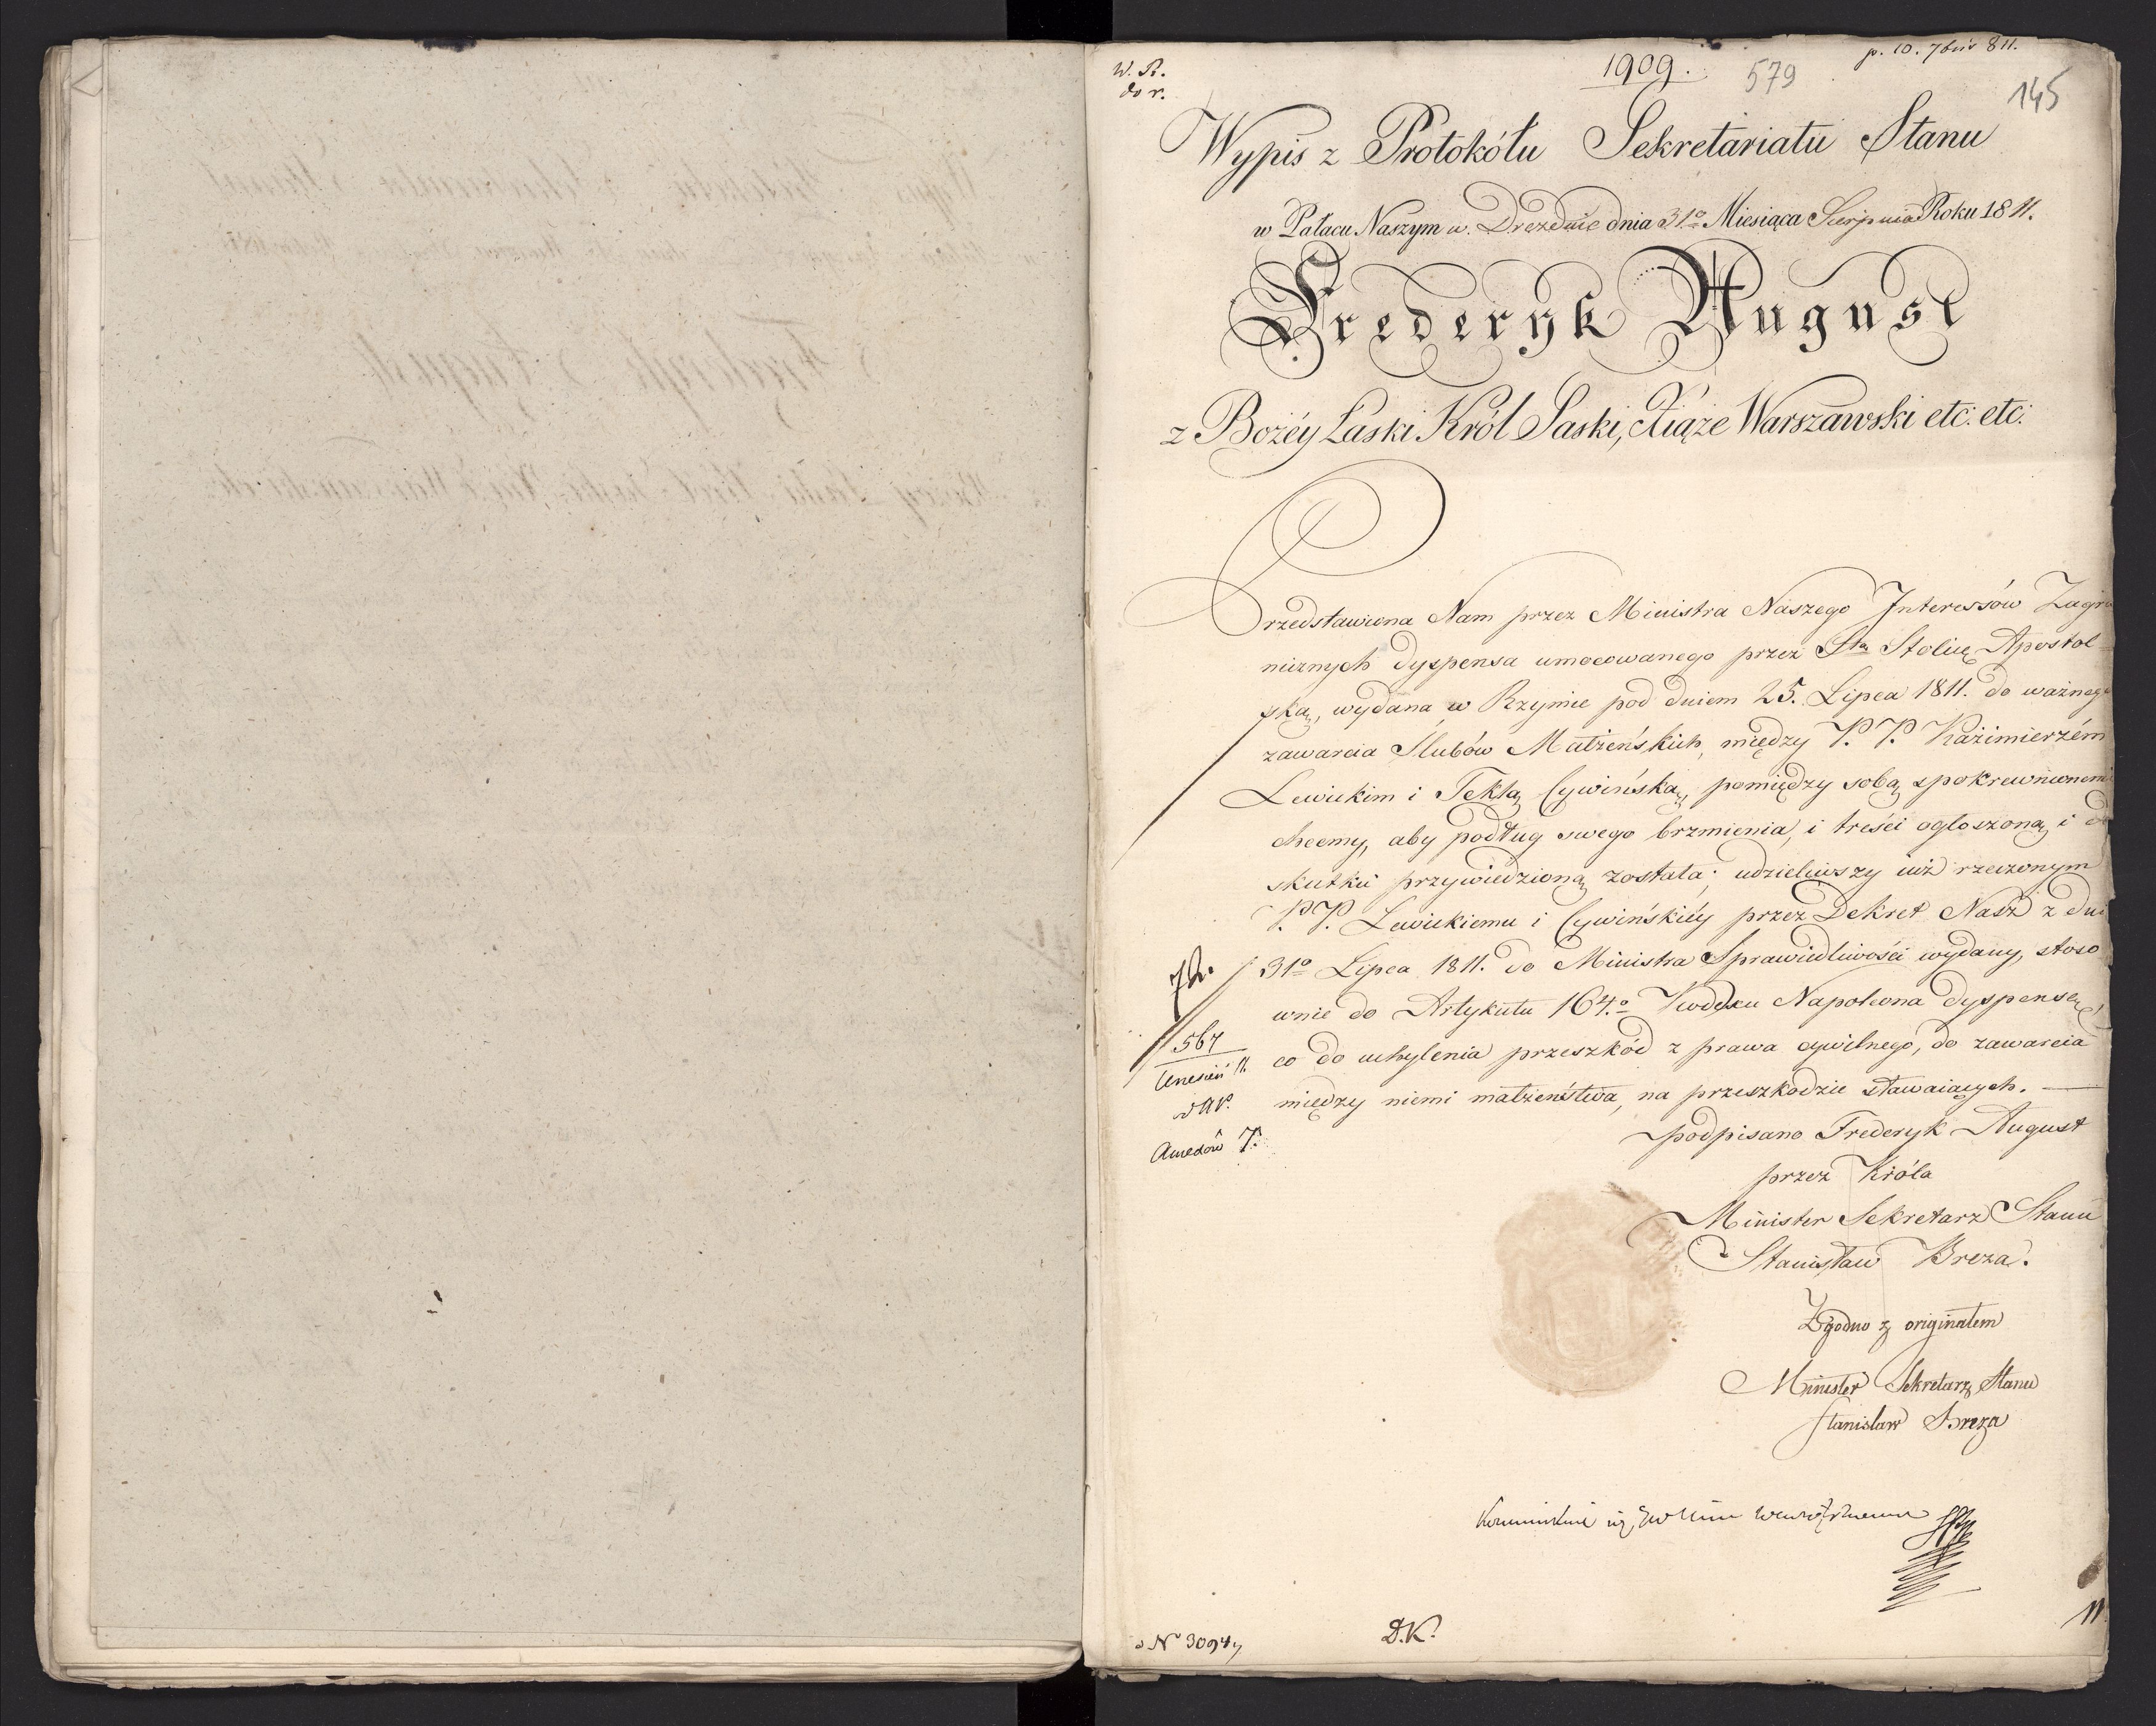 W. R.
do r.
1909.
579
p. 10. 7bris 811.
145
Wypis z Protokółu Sekretariatu Stanu
w Pałacu Naszym w Dreźdnie dnia 31º Miesiąca Sierpnia Roku 1811.
Frederyk August
z Bożéy Łaski Król Saski, Xiąże Warszawski etc: etc:
Przedstawiona Nam przez Ministra Naszego Interessów Zagra
nicznych dyspensa umocowanego przez Stą Stolicę Apostol
ską, wydana w Rzymie pod dniem 25. Lipca 1811. do ważnego
zawarcia Ślubów Małżeńskich, między P. P. Kaźimierzém
Lewickim i Teklą Cywińską, pomiędzy sobą spokrewnionemi
chcemy, aby podług swego brzmienia, i treści ogłoszoną i do
skutku przywiedzioną została; udzieliwszy iuż rzeczonym
P. P. Lewickiemu i Cywińskiéy przez Dekret Nasz z dni
31º Lipca 1811. do Ministra Sprawiedliwości wydany, stoso
wnie do Artykułu 164.º Kodexu Napoleona dyspensę,
co do uchylenia przeszkód z prawa cywilnego, do zawarcia
między niemi małżeństwa, na przeszkodzie stawaiących.
567
podpisano Frederyk August
przez Króla
Minister Sekretarz Stanu
Stanisław Breza.
Zgodno z originałem
Minister Sekretarz Stanu
Stanisław Breza
D.K.
N 3094